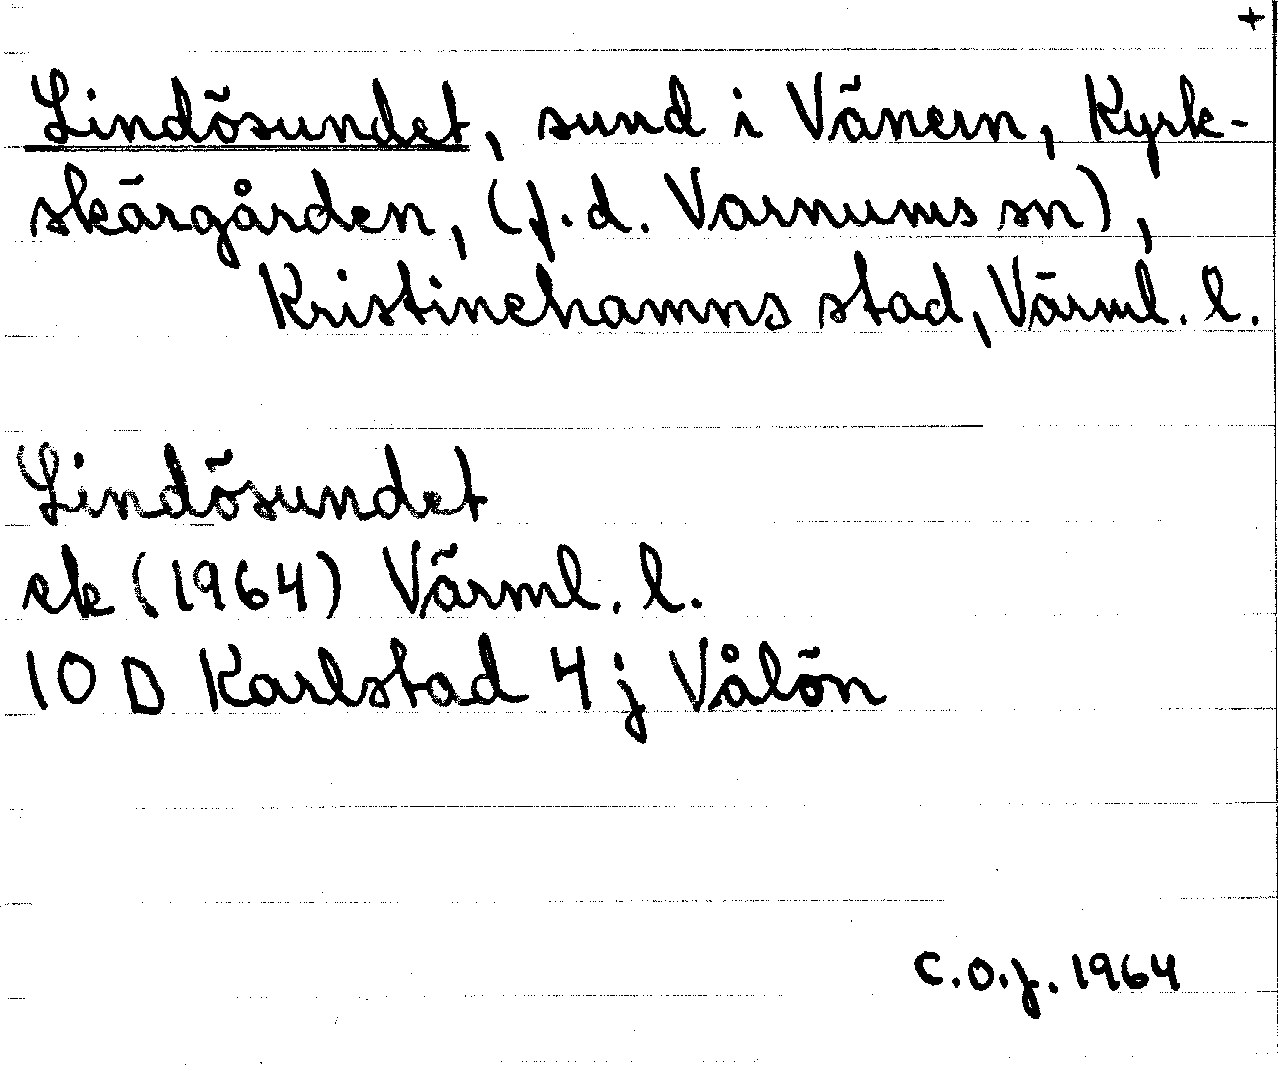 +
Lindösundet, sund i Vänern, Kyrk-
skärgården, (f.d. Varnums sn),
Kristinehamns stad, Värml. l.
Lindösundet
ek (1964) Värml. l.
10 D Karlstad 4 j Vålön
C.O.J. 1964